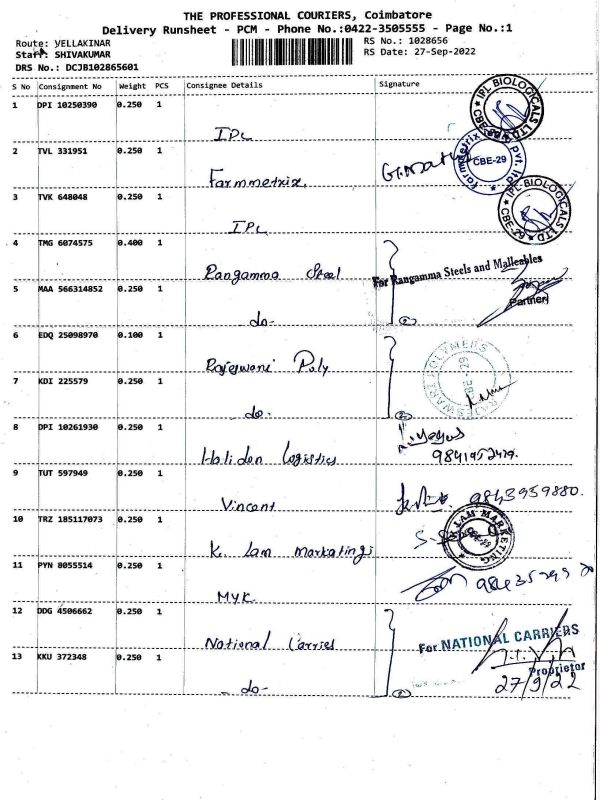 THE PROFESSIONAL COURIERS, Coimbatore
Delivery Runsheet - PCM - Phone No.:0422-3505555 - Page No.:1
Route: YELLAKINAR
RS No.: 1028656
Staff: SHIVAKUMAR
RS Date: 27-Sep-2022
DRS No.: DCJB102865601
S No Consignment No Weight PCS Consignee Details Signature
1 DPI 10250390 0.250 1
IPL
IPL BIOLOGICALS LTD CBE-29
2 TVL 331951 0.250 1
Farmmetrix.
Farmmetrix Pvt. Ltd CBE-29
3 TVK 648048 0.250 1
IPL
IPL BIOLOGICALS LTD CBE-29
4 TMG 6074575 0.400 1
Rangamma Steel
For Rangamma Steels and Malleables
Partner
5 MAA 566314852 0.250 1
do-
6 EDQ 25098970 0.100 1
Rajeswari Poly
RAJESWARI POLYMERS CBE-29
7 KDI 225579 0.250 1
do-
8 DPI 10261930 0.250 1
Logistics
9 TUT 597949 0.250 1
Vincent
9843959880.
10 TRZ 185117073 0.250 1
K. Lam Marketings
LAM MARKETING
11 PYN 8055514 0.250 1
MYK
12 DDG 4506662 0.250 1
National Carries
For NATIONAL CARRIERS
Proprietor
13 KKU 372348 0.250 1
do-
27/9/22